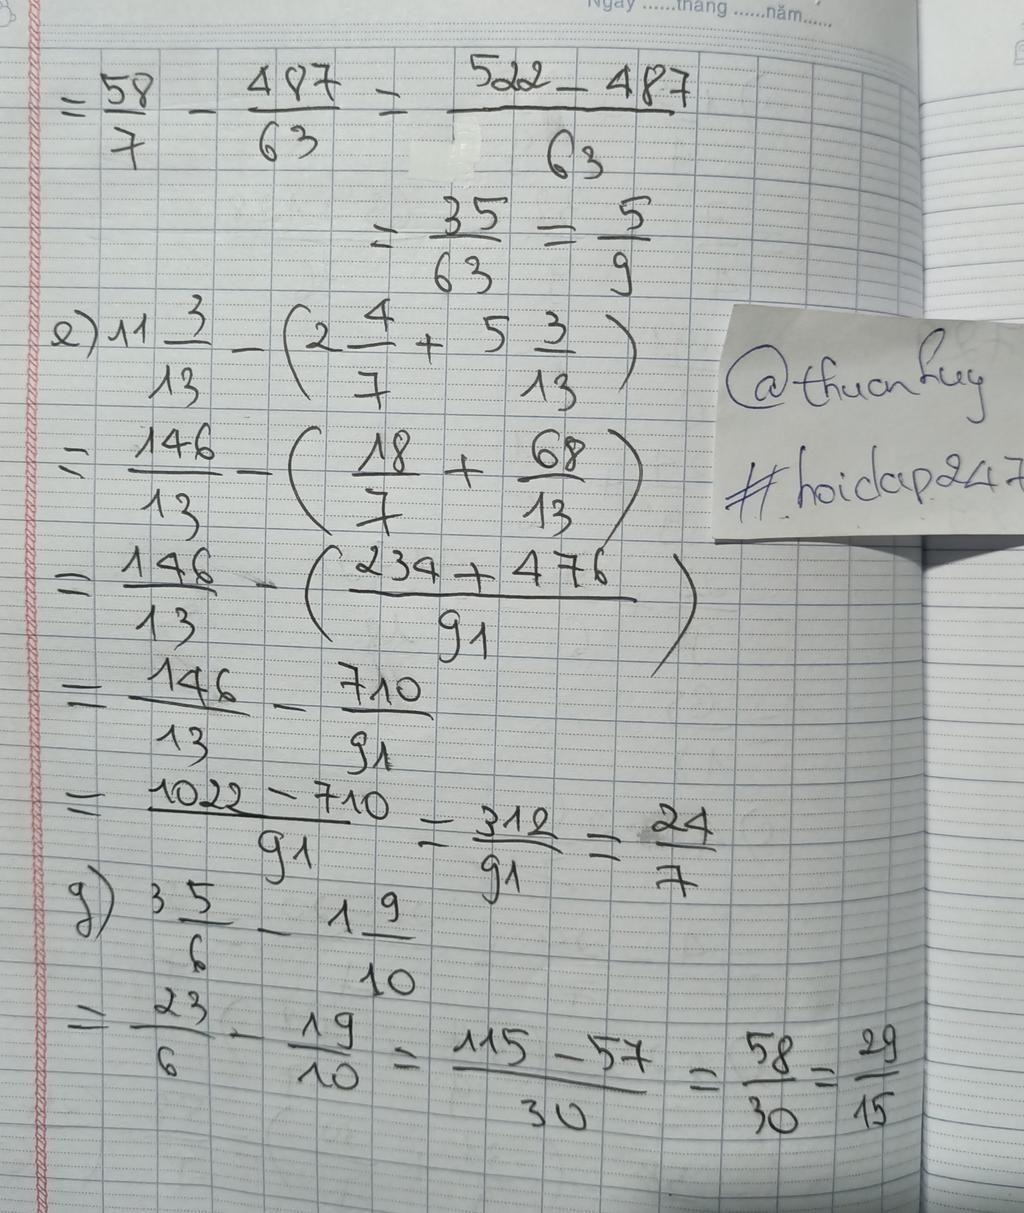 Ngày ......tháng ......năm......
= 58/7 - 487/63 = (522 - 487)/63
= 35/63 = 5/9
e) 11 3/13 - (2 4/7 + 5 3/13)
= 146/13 - (18/7 + 68/13)
= 146/13 - ((234 + 476)/91)
= 146/13 - 710/91
= (1022 - 710)/91 = 312/91 = 24/7
g) 3 5/6 - 1 9/10
= 23/6 - 19/10 = (115 - 57)/30 = 58/30 = 29/15
@thuanhuy
#hoidap247